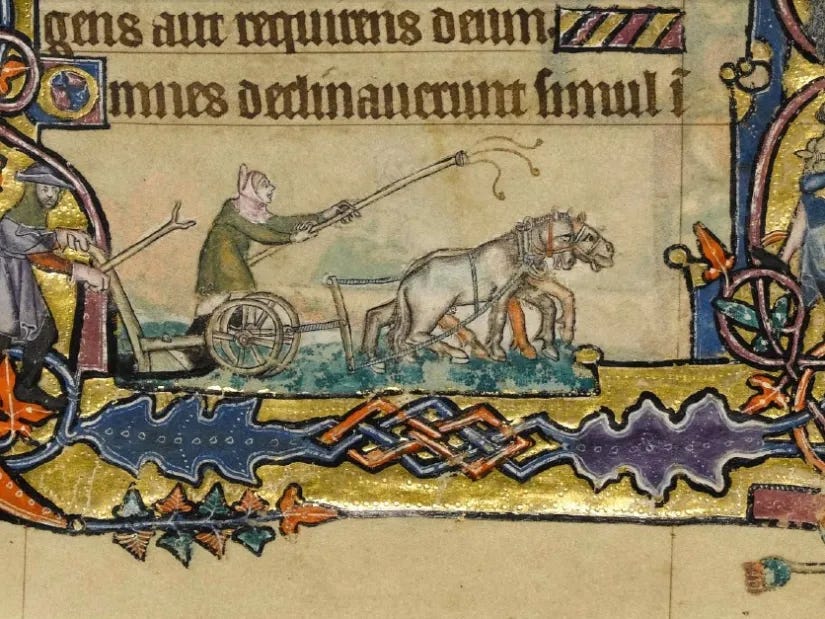 gens aut requirens deum.
Omnes declinauerunt simul ī